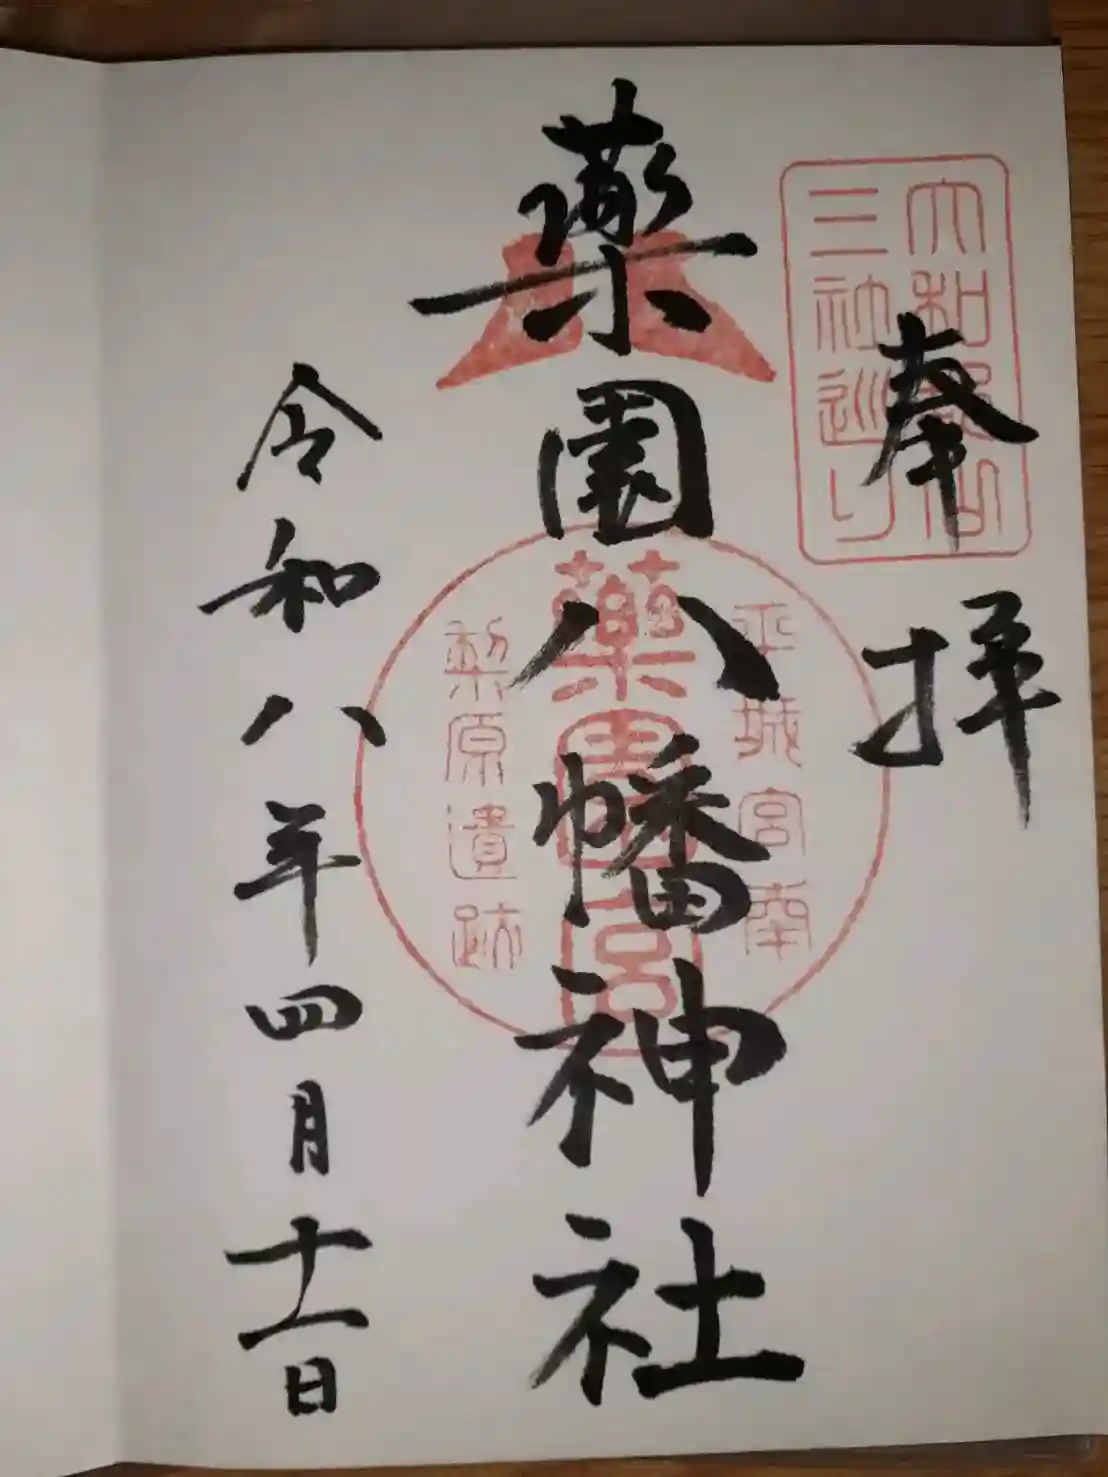 奉拝
大和郡山
三社巡り
薬園八幡神社
平城宮南
藥園宮
梨原遺跡
令和八年四月十一日